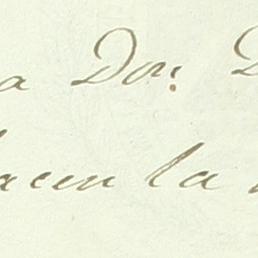 a Don. D
hacen la